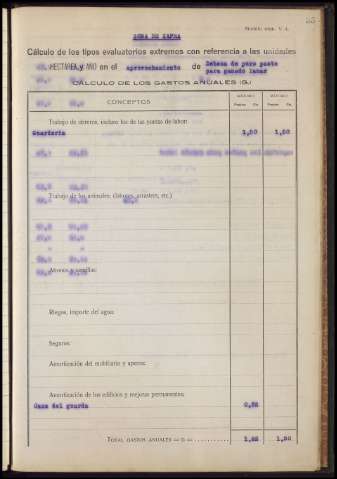 Modelo núm. V 4.
ZONA DE ZAFRA
Cálculo de los tipos evaluatorios extremos con referencia a las unidades
HECTÁREA y AÑO en el aprovechamiento de Dehesa de puro pasto
para ganado lanar
CÁLCULO DE LOS GASTOS ANUALES (G.)
CONCEPTOS
MÁXIMO MÍNIMO
Pesetas Cts. Pesetas Cts.
Trabajo de obreros, incluso los de las yuntas de labor:
Guardería 1,50 1,50
Trabajo de los animales: (labores, arrastres, etc.)
Abonos y semillas:
Riegos, importe del agua:
Seguros:
Amortización del mobiliario y aperos:
Amortización de los edificios y mejoras permanentes:
Casa del guarda
TOTAL GASTOS ANUALES = G = 1,50